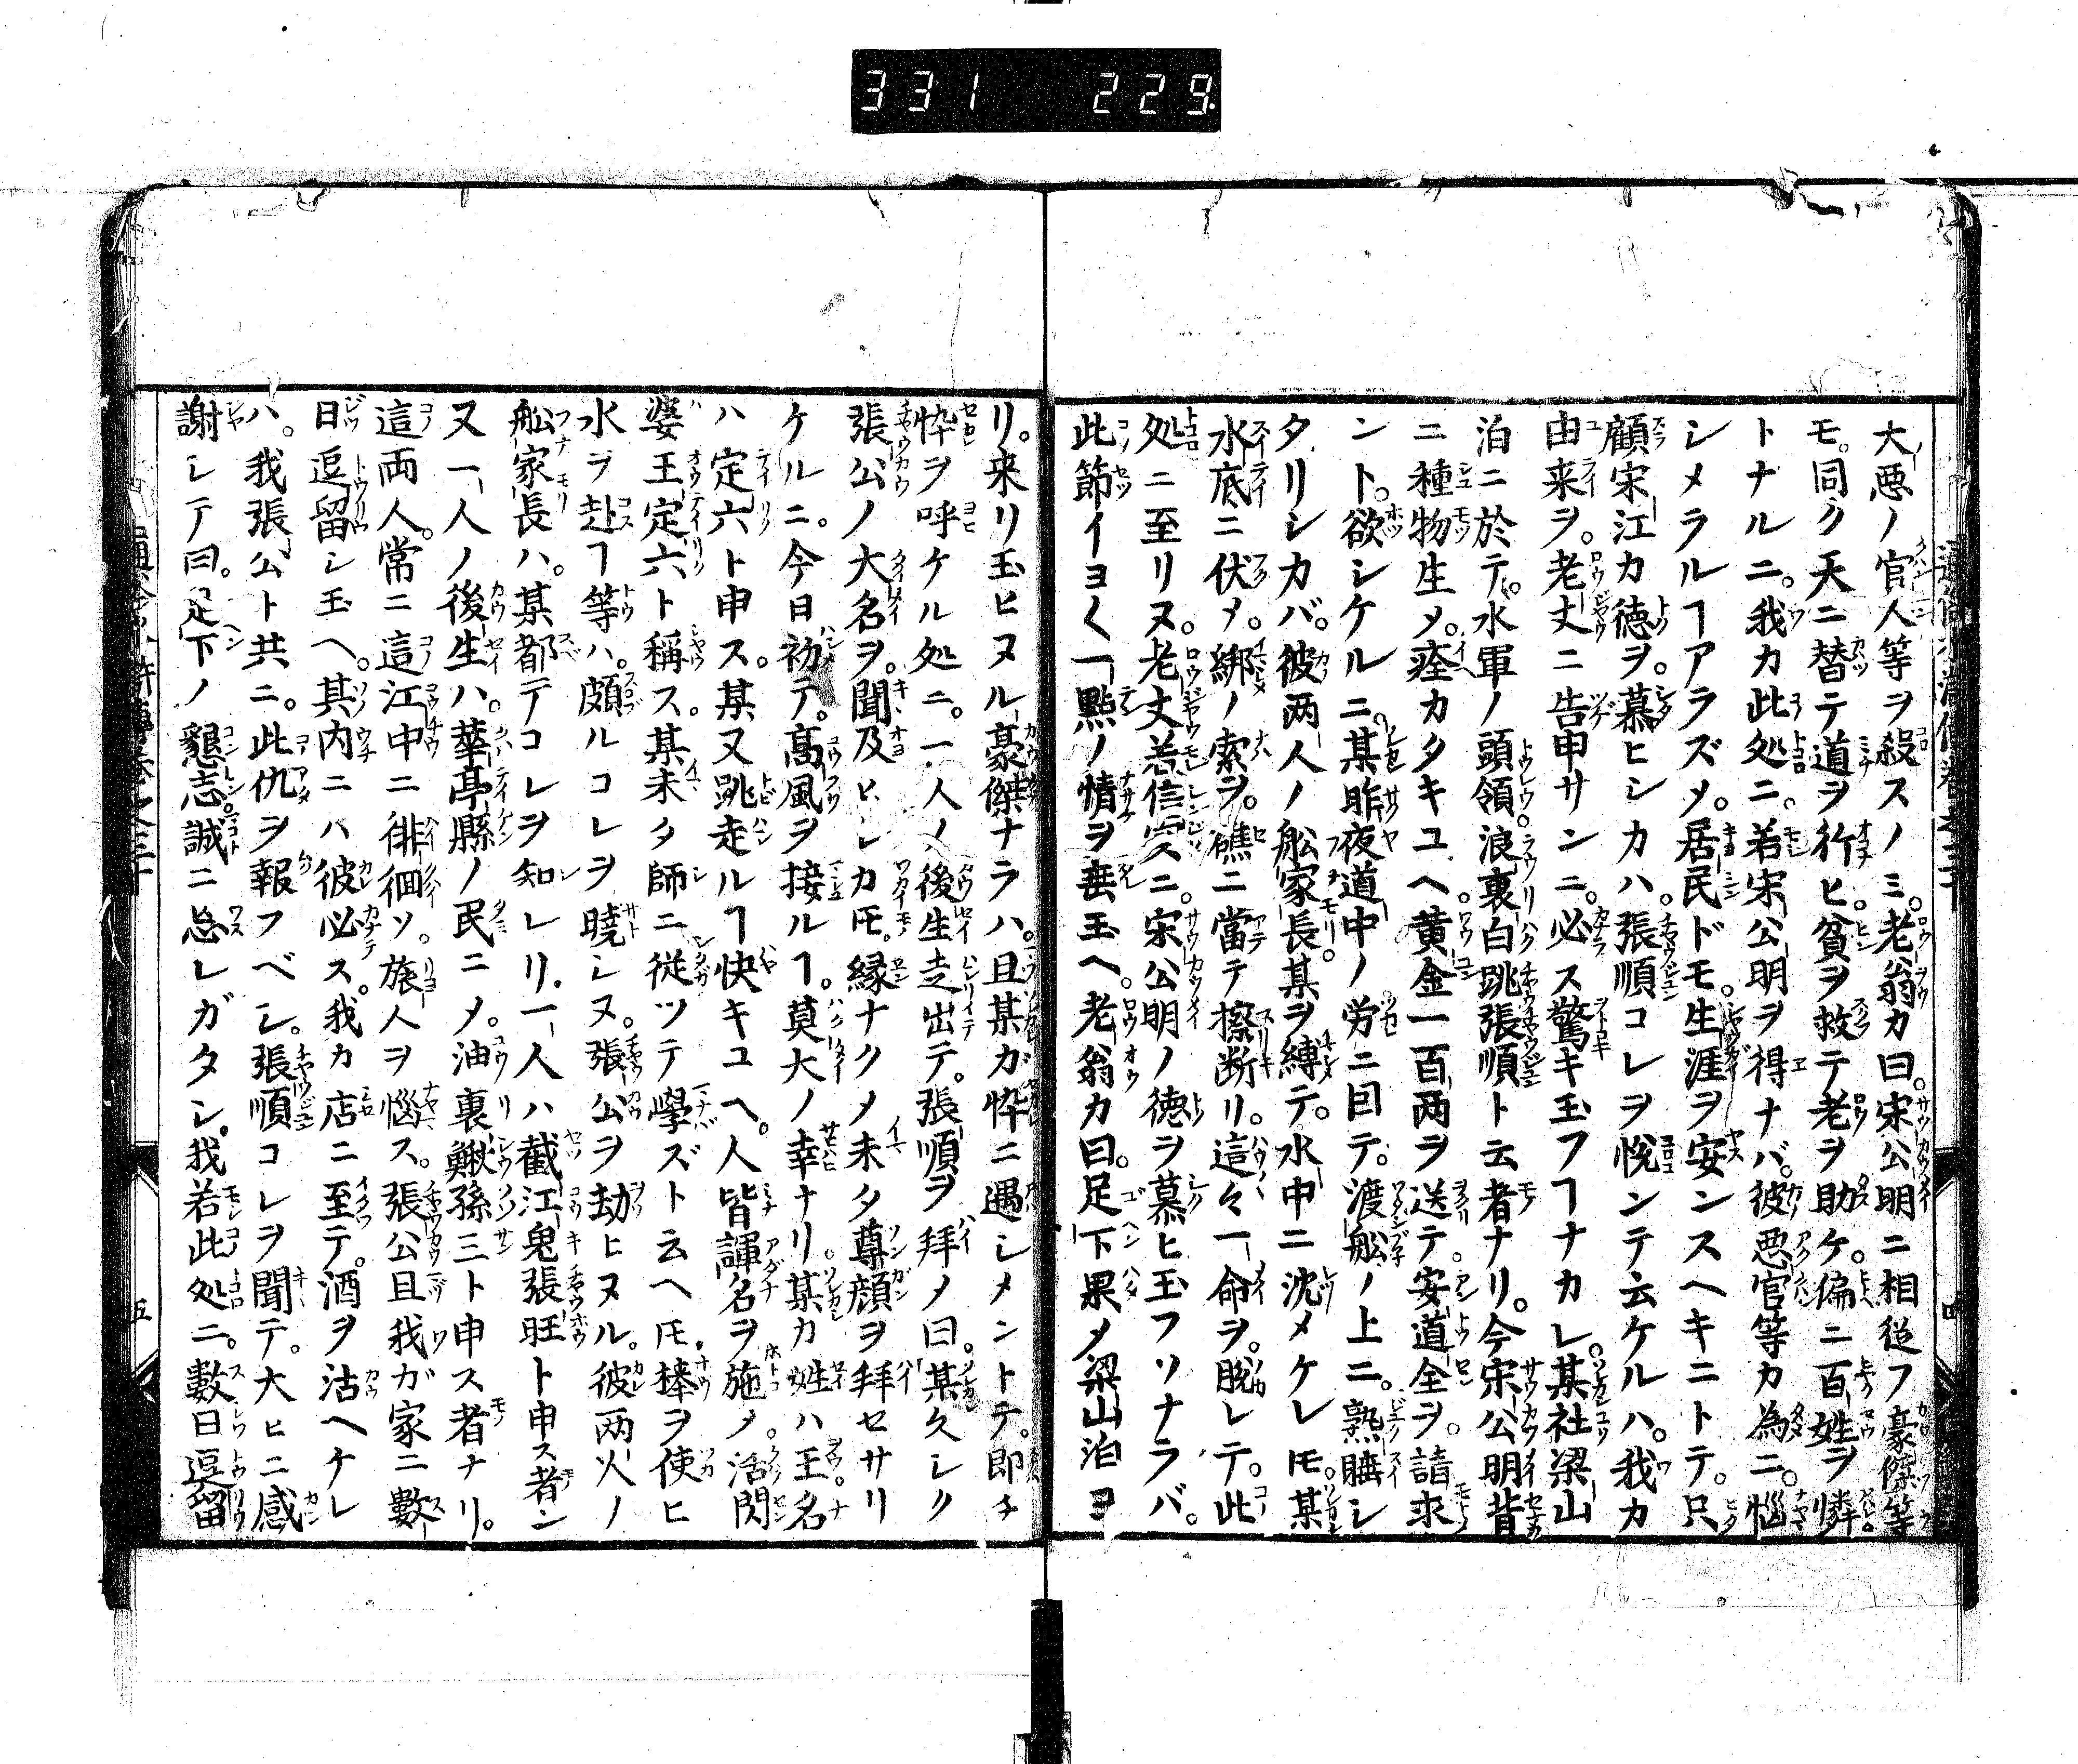 331 229
大悪ノ官人等ヲ殺スノミ。老翁カ曰。宋公明ニ相従フ豪傑等
モ。同ク天ニ替テ道ヲ行ヒ。貧ヲ救テ老ヲ助ケ。偏ニ百姓ヲ憐
トナルニ。我カ此処ニ。若宋公明ヲ得ナバ。彼悪官等カ為ニ。惱
シメラルヿアラズメ。居民ドモ。生涯ヲ安ンスヘキニトテ。只
顧宋江カ徳ヲ。慕ヒシカハ。張順コレヲ悦ンテ云ケルハ。我カ
由来ヲ。老丈ニ告申サンニ。必ス驚キ玉フヿナカレ。某社梁山
泊ニ於テ。水軍ノ頭領。浪裏白跳張順ト云者ナリ。今宋公明背
ニ種物生メ。痊カタキユヘ。黄金一百両ヲ送テ。安道全ヲ。請求
ント。欲シケルニ。某昨夜道中ノ労ニ因テ。渡舩ノ上ニ。熟睡シ
タリシカバ。彼両人ノ舩家長。某ヲ縛テ。水中ニ沈メケレ𪜈。某
水底ニ伏メ。綁ノ索ヲ。礁ニ當テ擦断リ。這々一命ヲ。脱レテ。此
処ニ至リヌ。老丈若信実ニ。宋公明ノ徳ヲ慕ヒ玉フソナラバ。
此節イヨ〱一點ノ情ヲ垂玉ヘ。老翁カ曰。足下果メ梁山泊ヨ
リ。来リ玉ヒヌル豪傑ナラハ。且某ガ忰ニ遇シメントテ。即チ
忰ヲ呼ケル処ニ。一人ノ後生走出テ。張順ヲ拜メ曰。某久シク
張公ノ大名ヲ。聞及ヒシカ𪜈。縁ナクメ未タ尊顔ヲ拜セサリ
ケルニ。今日初テ。髙風ヲ接ルヿ。莫大ノ幸ナリ。某カ姓ハ王名
ハ定六ト申ス。某又跳走ルヿ快キユヘ。人皆諢名ヲ施メ。活閃
婆王定六ト稱ス。某未タ師ニ従ツテ學ズト云ヘ𪜈。棒ヲ使ヒ
水ヲ赴ヿ等ハ。頗ルコレヲ曉シヌ。張公ヲ劫ヒヌル。彼両火ノ
舩家長ハ。某都テコレヲ知レリ。一人ハ截江鬼張旺ト申ス者ン
又一人ノ後生ハ。華亭縣ノ民ニメ。油裏鰍孫三ト申ス者ナリ。
這両人。常ニ這江中ニ徘徊ソ。旅人ヲ惱ス。張公且我ガ家ニ數
日逗留シ玉ヘ。其内ニハ彼必ス。我カ店ニ至テ。酒ヲ沽ヘケレ
ハ。我張公ト共ニ。此仇ヲ報フベシ。張順コレヲ聞テ。大ヒニ感
謝シテ曰。足下ノ懇志誠ニ忘レガタシ。我若此処ニ。數日逗留
五